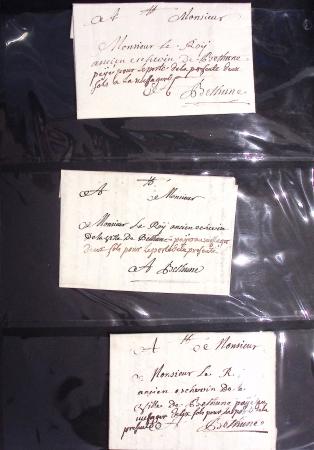 A Monsieur
Monsieur le Roÿ
ancien eschevin de Bethune
payés pour le porte de la presente deux
sols a la messagere
A Bethune
A Monsieur
Monsieur Le Roÿ ancien eschevin
de la ville De Bethune payes au messager
deux sols pour le porte de la presente
A Bethune
A Monsieur
Monsieur Le R
ancien eschevin de la
ville de Bethune payé au
messager deux sols pour le port de la
presente
Bethune